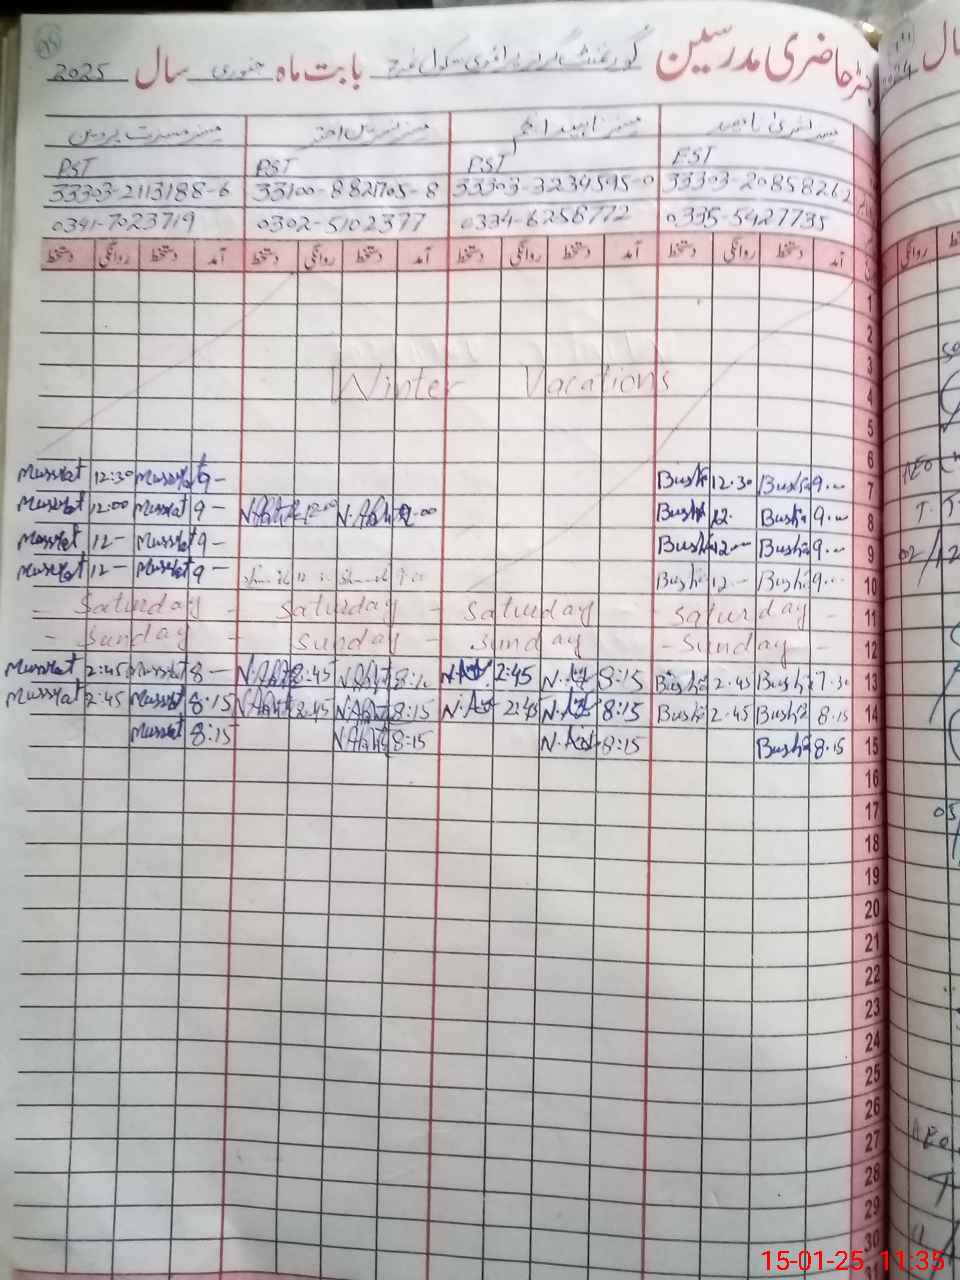 رجسٹر حاضری مدرسین گورنمنٹ گرلز پرائمری سکول بابت ماہ جنوری سال 2025
مسز بشریٰ ناہید مسز ناہید اختر مسز نسرین اختر مسز مسرت پروین
PST PST PST PST
33303-2113188-6 33100-8821705-8 33303-3234595-0 33303-2085826
0341-7023719 0302-5102377 0334-6256772 0335-5427735
آمد دستخط روانگی دستخط آمد دستخط روانگی دستخط آمد دستخط روانگی دستخط آمد دستخط روانگی دستخط
1
2
3
Winter Vacations 4
5
6
Mussrat 12:30 Mussrat 9- Bushra 12.30 Bushra 9.- 7
Mussrat 12:00 Mussrat 9- 12:00 9:00 Bushra 12. Bushra 9.- 8
Mussrat 12- Mussrat 9- Bushra 12- Bushra 9.- 9
Mussrat 12- Mussrat 9- Bushra 12- Bushra 9.- 10
- Saturday - Saturday - Saturday - Saturday - 11
- Sunday - Sunday - Sunday - Sunday - 12
Mussrat 2:45 Mussrat 8- 2:45 2:45 8:15 Bushra 2.45 Bushra 7.30 13
Mussrat 2:45 Mussrat 8:15 2:45 8:15 2:45 8:15 Bushra 2.45 Bushra 8.15 14
Mussrat 8:15 8:15 8:15 Bushra 8.15 15
16
17
18
19
20
21
22
23
24
25
26
27
28
29
30
31
15-01-25 11:35